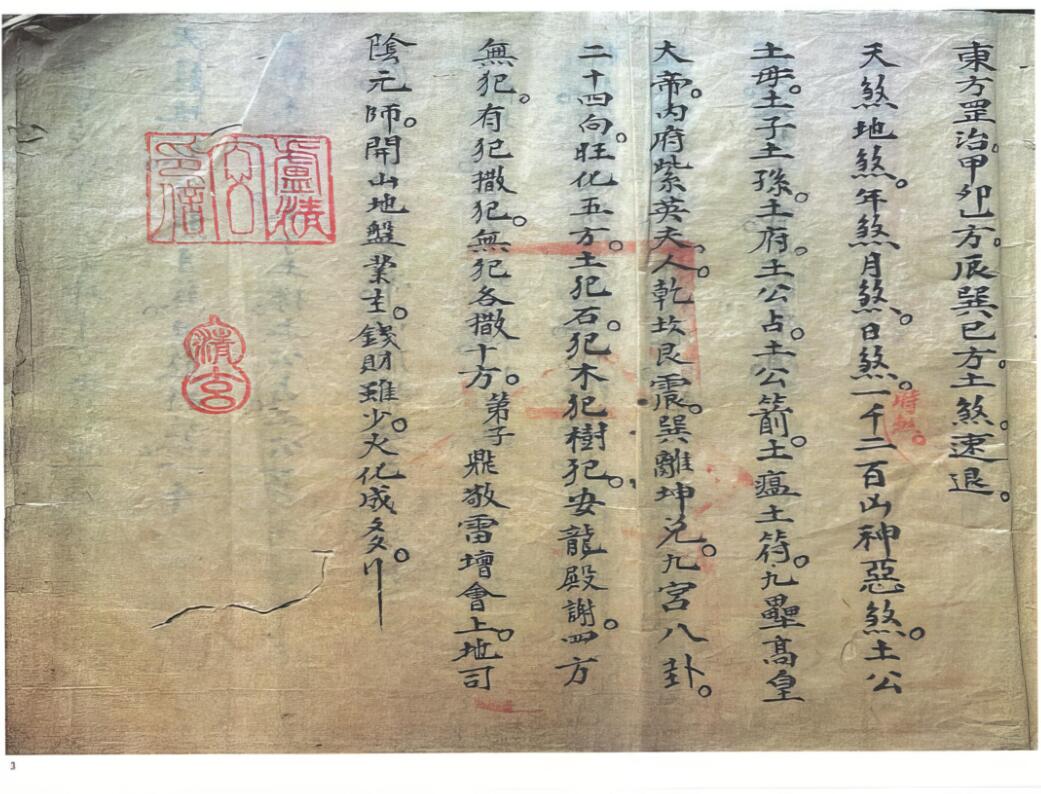 東方罡治。甲卯乙方。辰巽巳方。土煞速退。
天煞地煞。年煞月煞。日煞。時煞。一千二百凶神惡煞。土公
土母。土子土孫。土府。土公占。土公箭。土瘟土符。九壘高皇
大帝。內府紫英夫人。乾坎艮震。巽離坤兑。九宮八卦。
二十四向。旺化五方。土犯石。犯木犯樹犯。安龍殿謝。四方
無犯。有犯撒犯。無犯各撒十方。弟子鼎敬雷壇會上。地司
陰元師。開山地盤業主。錢財雖少。火化成多。
盧清
印信
清玄
3